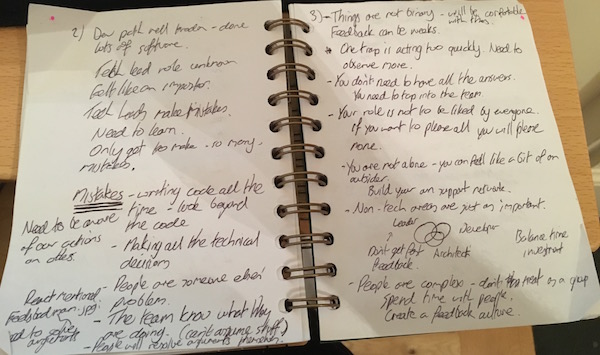 2) Dev path well trodden - done
lots of software.
Tech lead role unknown
Felt like an impostor.
Tech Leads make mistakes.
Need to learn.
Only get to make so many
mistakes.
Mistakes - writing code all the
time - look beyond
the code
Need to be aware
of our actions
on others
- Making all the technical
decisions
- People are someone elses
problem.
React mentioned
- The team know what they
are doing. (can't assume stuff)
- People will resolve arguments themselves
need to solve
arguments
3) - Things are not binary - will be comfortable
with this.
Feedback can be weaks.
* One trap is acting too quickly. Need to
observe more.
- You don't need to have all the answers.
You need to tap into the team.
- Your role is not to be liked by everyone.
If you want to please all you will please
none.
- You are not alone - you can feel like a bit of an
outsider.
Build your own support network.
- Non-tech areas are just as important.
Leader
Developer
?
Architect
Don't get fast
feedback.
Balance time
investment
- People are complex - don't treat as a group
Spend time with people.
Create a feedback culture.